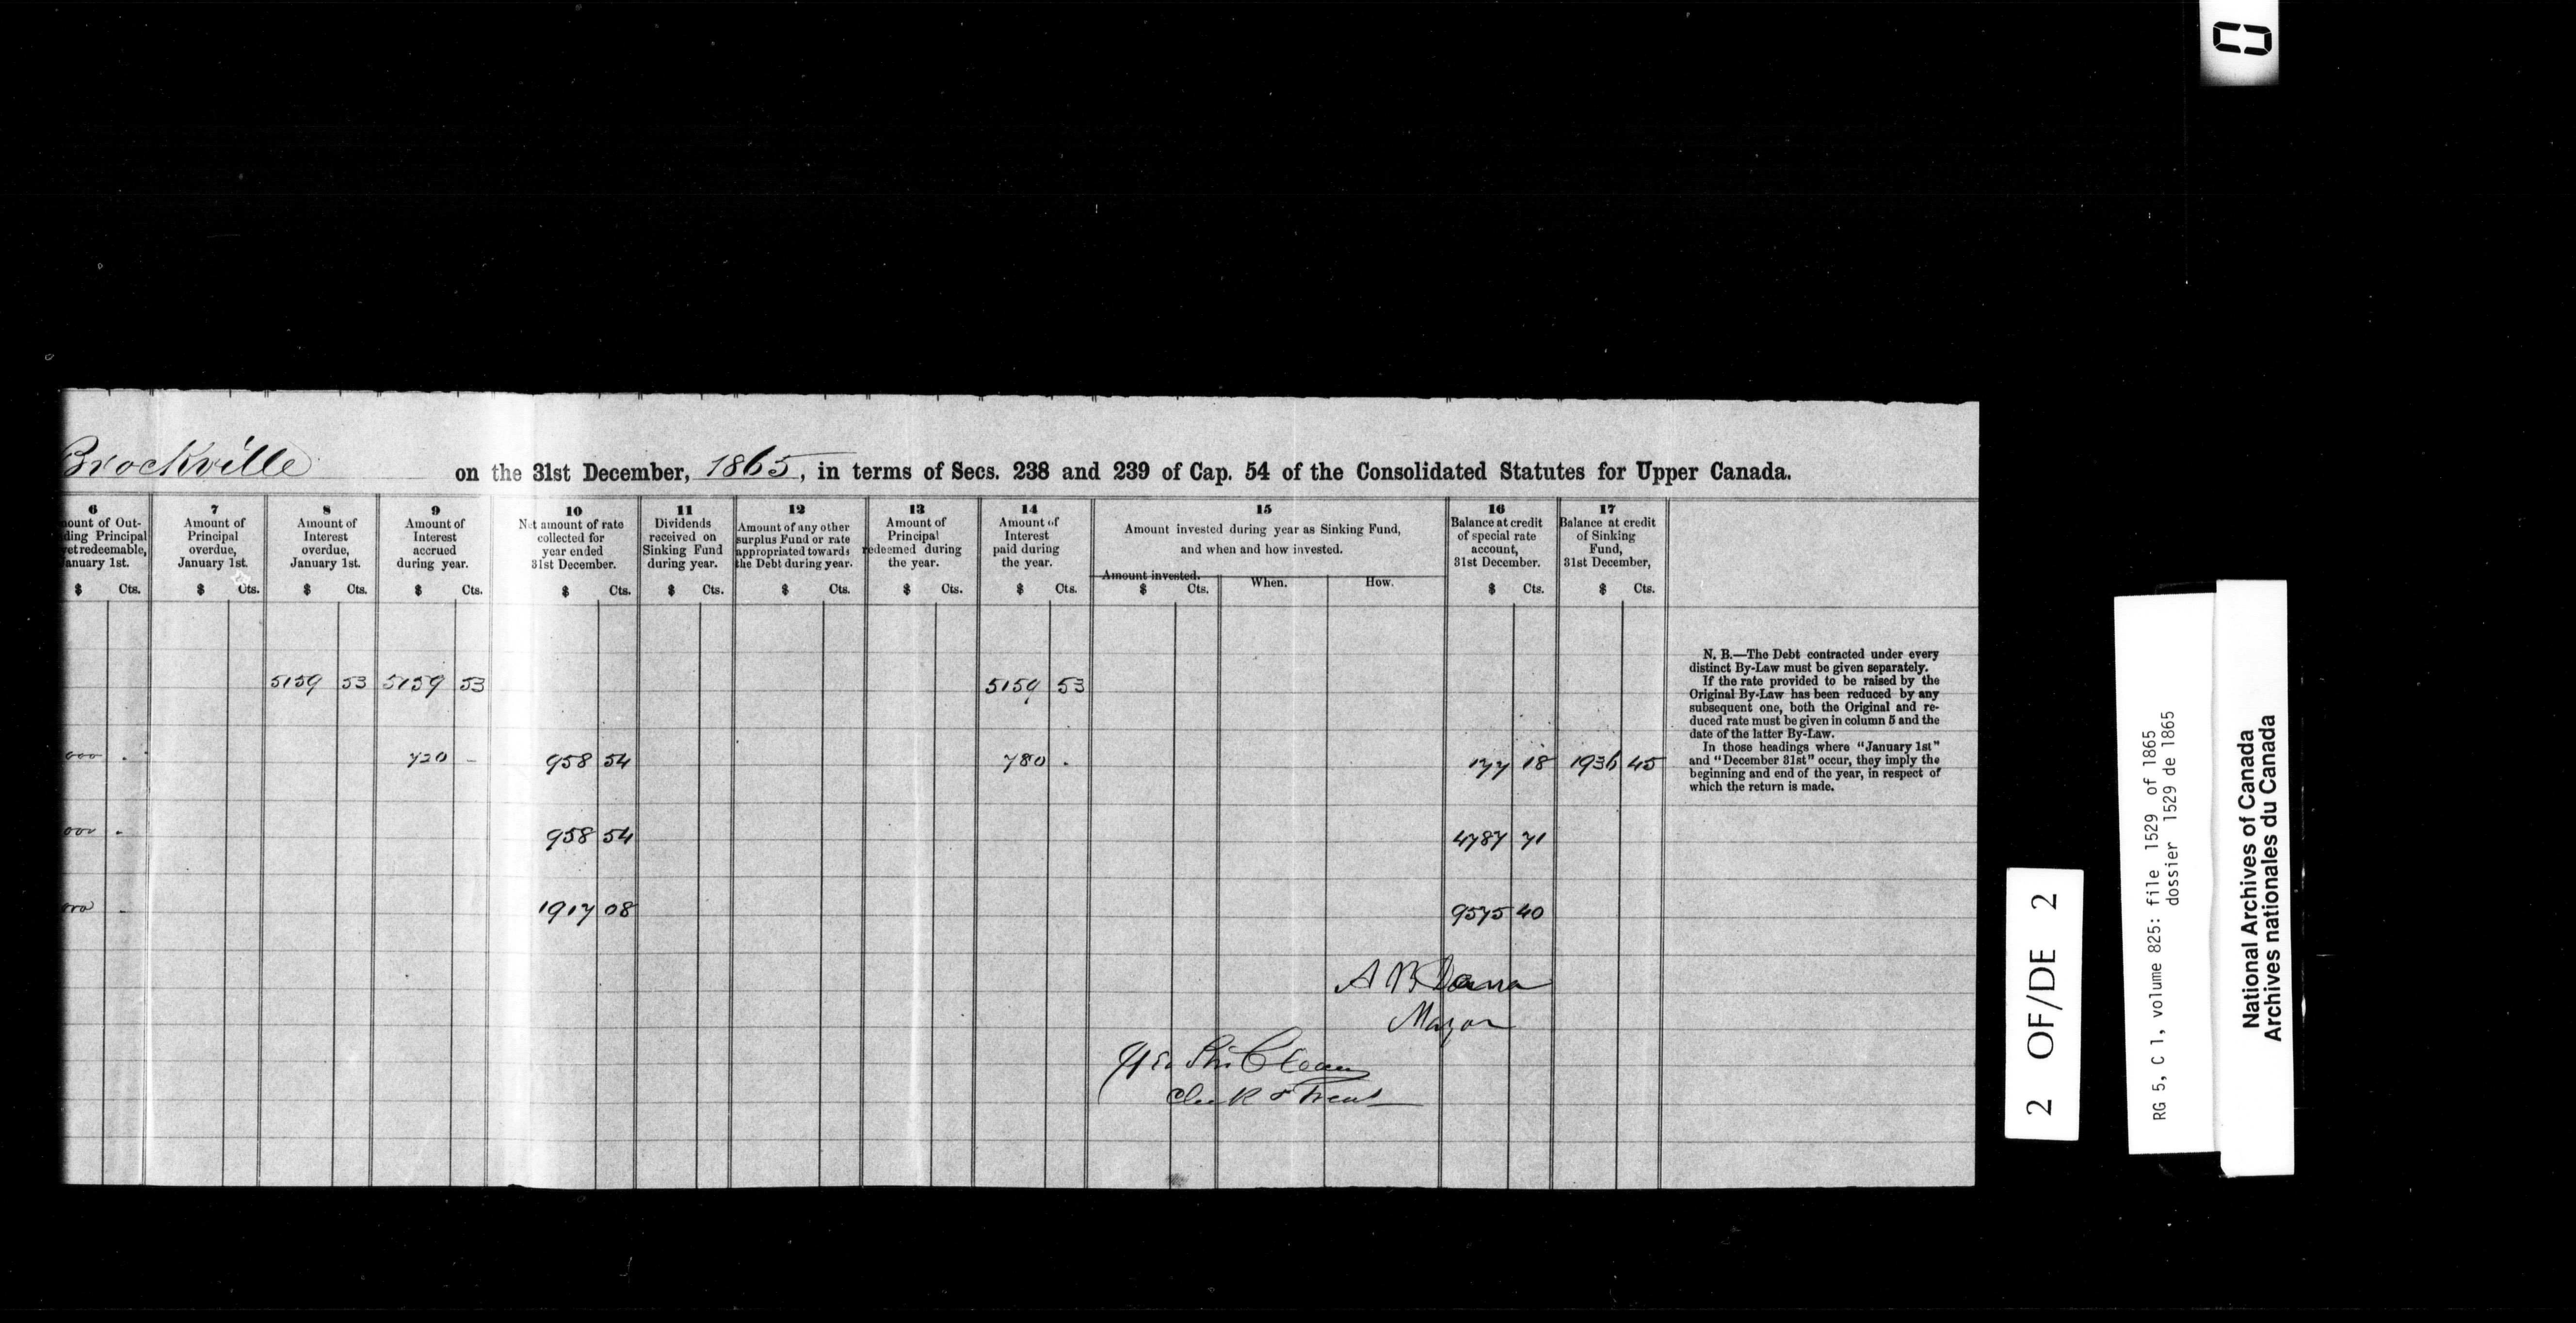 Brockville on the 31st December, 1865, in terms of Secs. 238 and 239 of Cap. 54 of the Consolidated Statutes for Upper Canada.
6 7 8 9 10 11 12 13 14 15 16 17
ount of Out-
ding Principal
et redeemable,
anuary 1st.
$ Cts.
Amount of
Principal
overdue,
January 1st.
$ Cts.
Amount of
Interest
overdue,
January 1st.
$ Cts.
Amount of
Interest
accrued
during year.
$ Cts.
Net amount of rate
collected for
year ended
31st December.
$ Cts.
Dividends
received on
Sinking Fund
during year.
$ Cts.
Amount of any other
surplus Fund or rate
appropriated towards
the Debt during year.
$ Cts.
Amount of
Principal
redeemed during
the year.
$ Cts.
Amount of
Interest
paid during
the year.
$ Cts.
Amount invested during year as Sinking Fund,
and when and how invested.
Amount invested. When. How.
$ Cts.
Balance at credit
of special rate
account,
31st December.
$ Cts.
Balance at credit
of Sinking
Fund,
31st December,
$ Cts.
5159 53 5159 53 5159 53
000 . 720 - 958 54 780 . 177 18 1936 45
000 . 958 54 4787 71
000 - 1917 08 9575 40
N. B.—The Debt contracted under every
distinct By-Law must be given separately.
If the rate provided to be raised by the
Original By-Law has been reduced by any
subsequent one, both the Original and re-
duced rate must be given in column 5 and the
date of the latter By-Law.
In those headings where "January 1st"
and "December 31st" occur, they imply the
beginning and end of the year, in respect of
which the return is made.
A B Dana
Mayor
Clerk & Treas
2 OF/DE 2
RG 5, C 1, volume 825: file 1529 of 1865
dossier 1529 de 1865
National Archives of Canada
Archives nationales du Canada